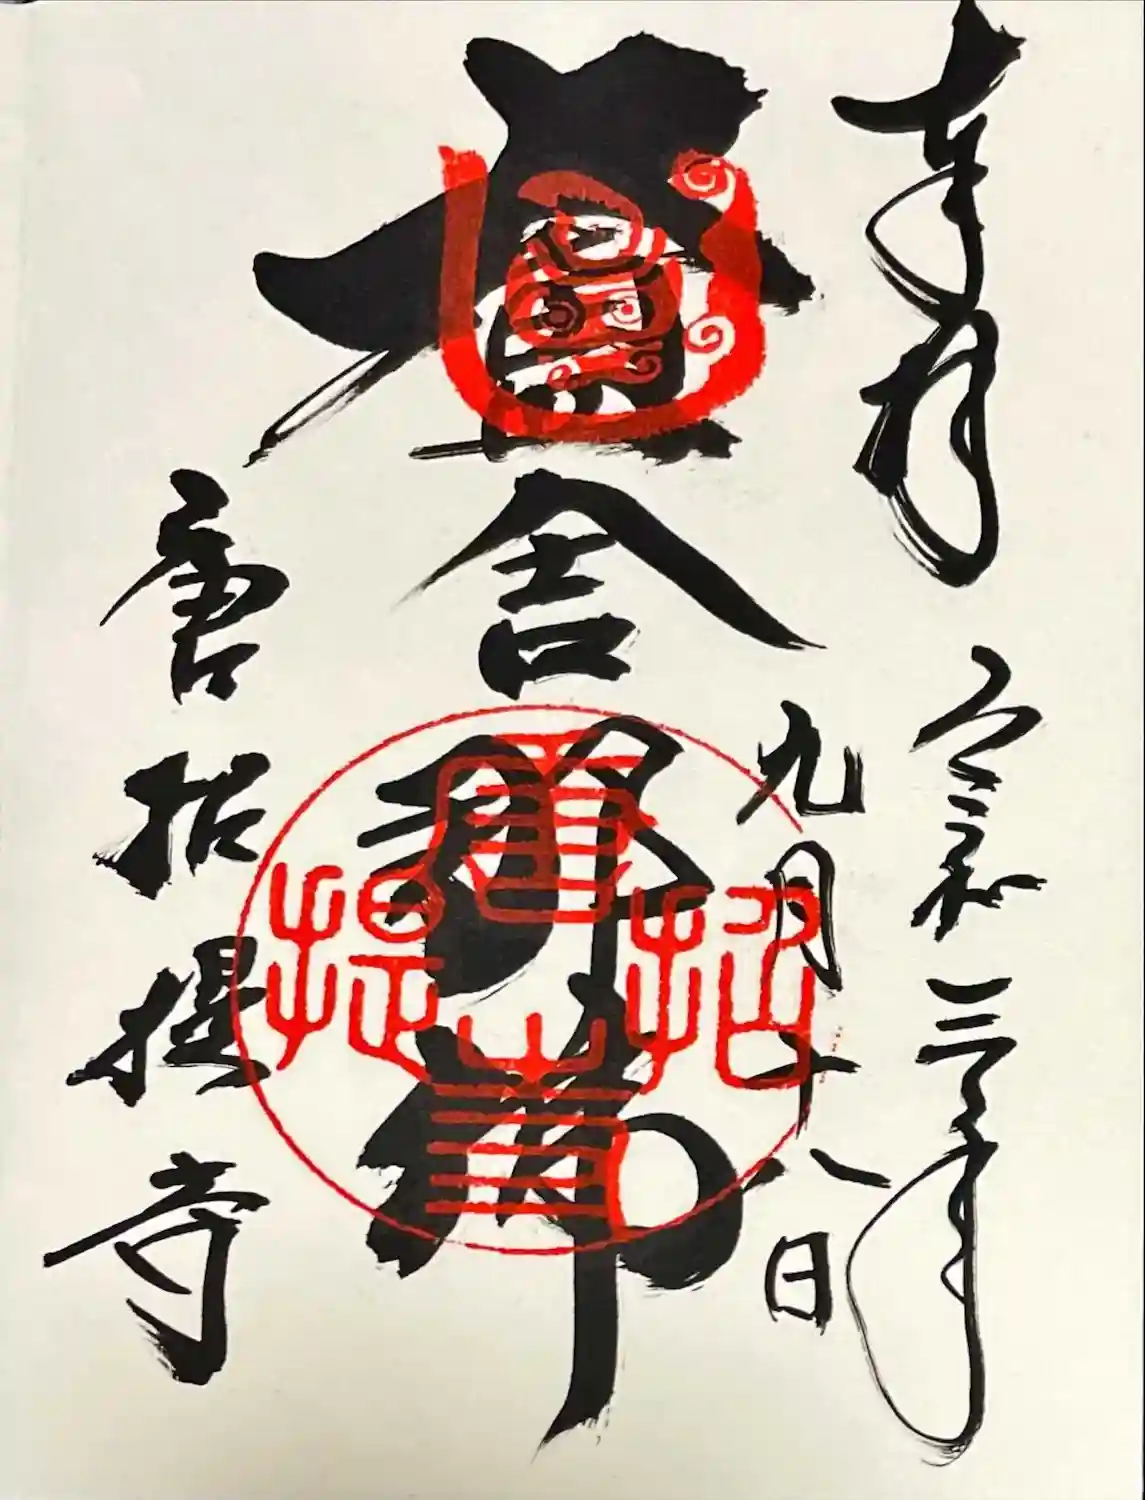 奉拝
令和三年
九月十八日
盧舎那佛
唐招提寺
唐招提寺